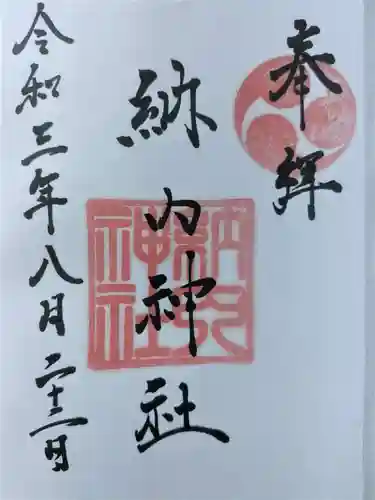 奉拝
納内神社
令和三年八月二十二日
納内
神社